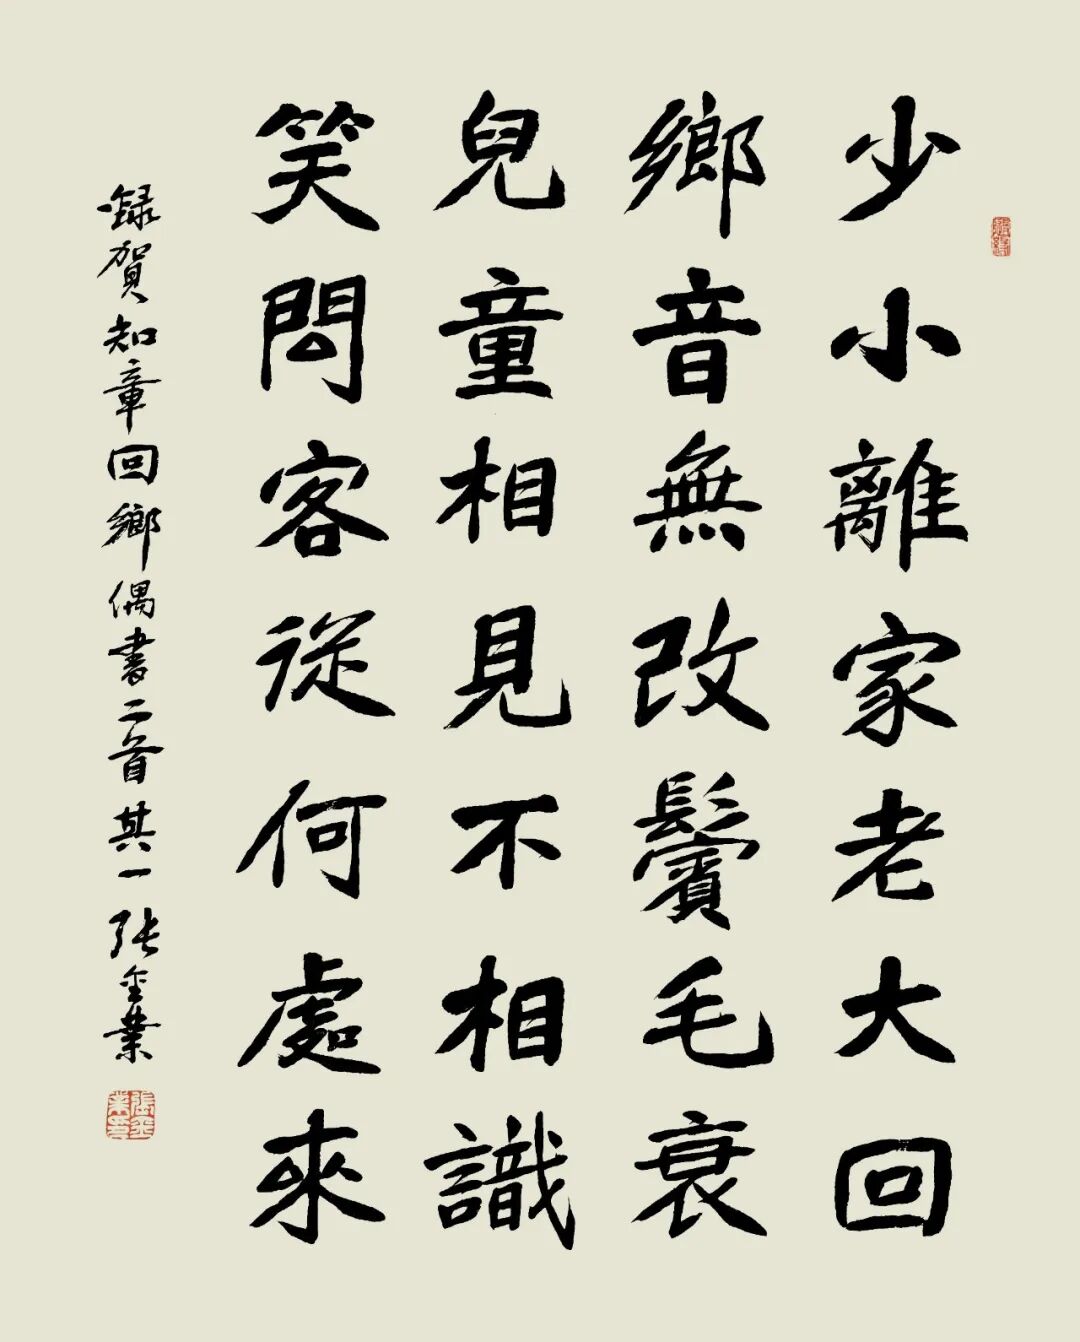 少小離家老大回
鄉音無改鬢毛衰
兒童相見不相識
笑問客從何處來
録賀知章回鄉偶書二首其一 张金業